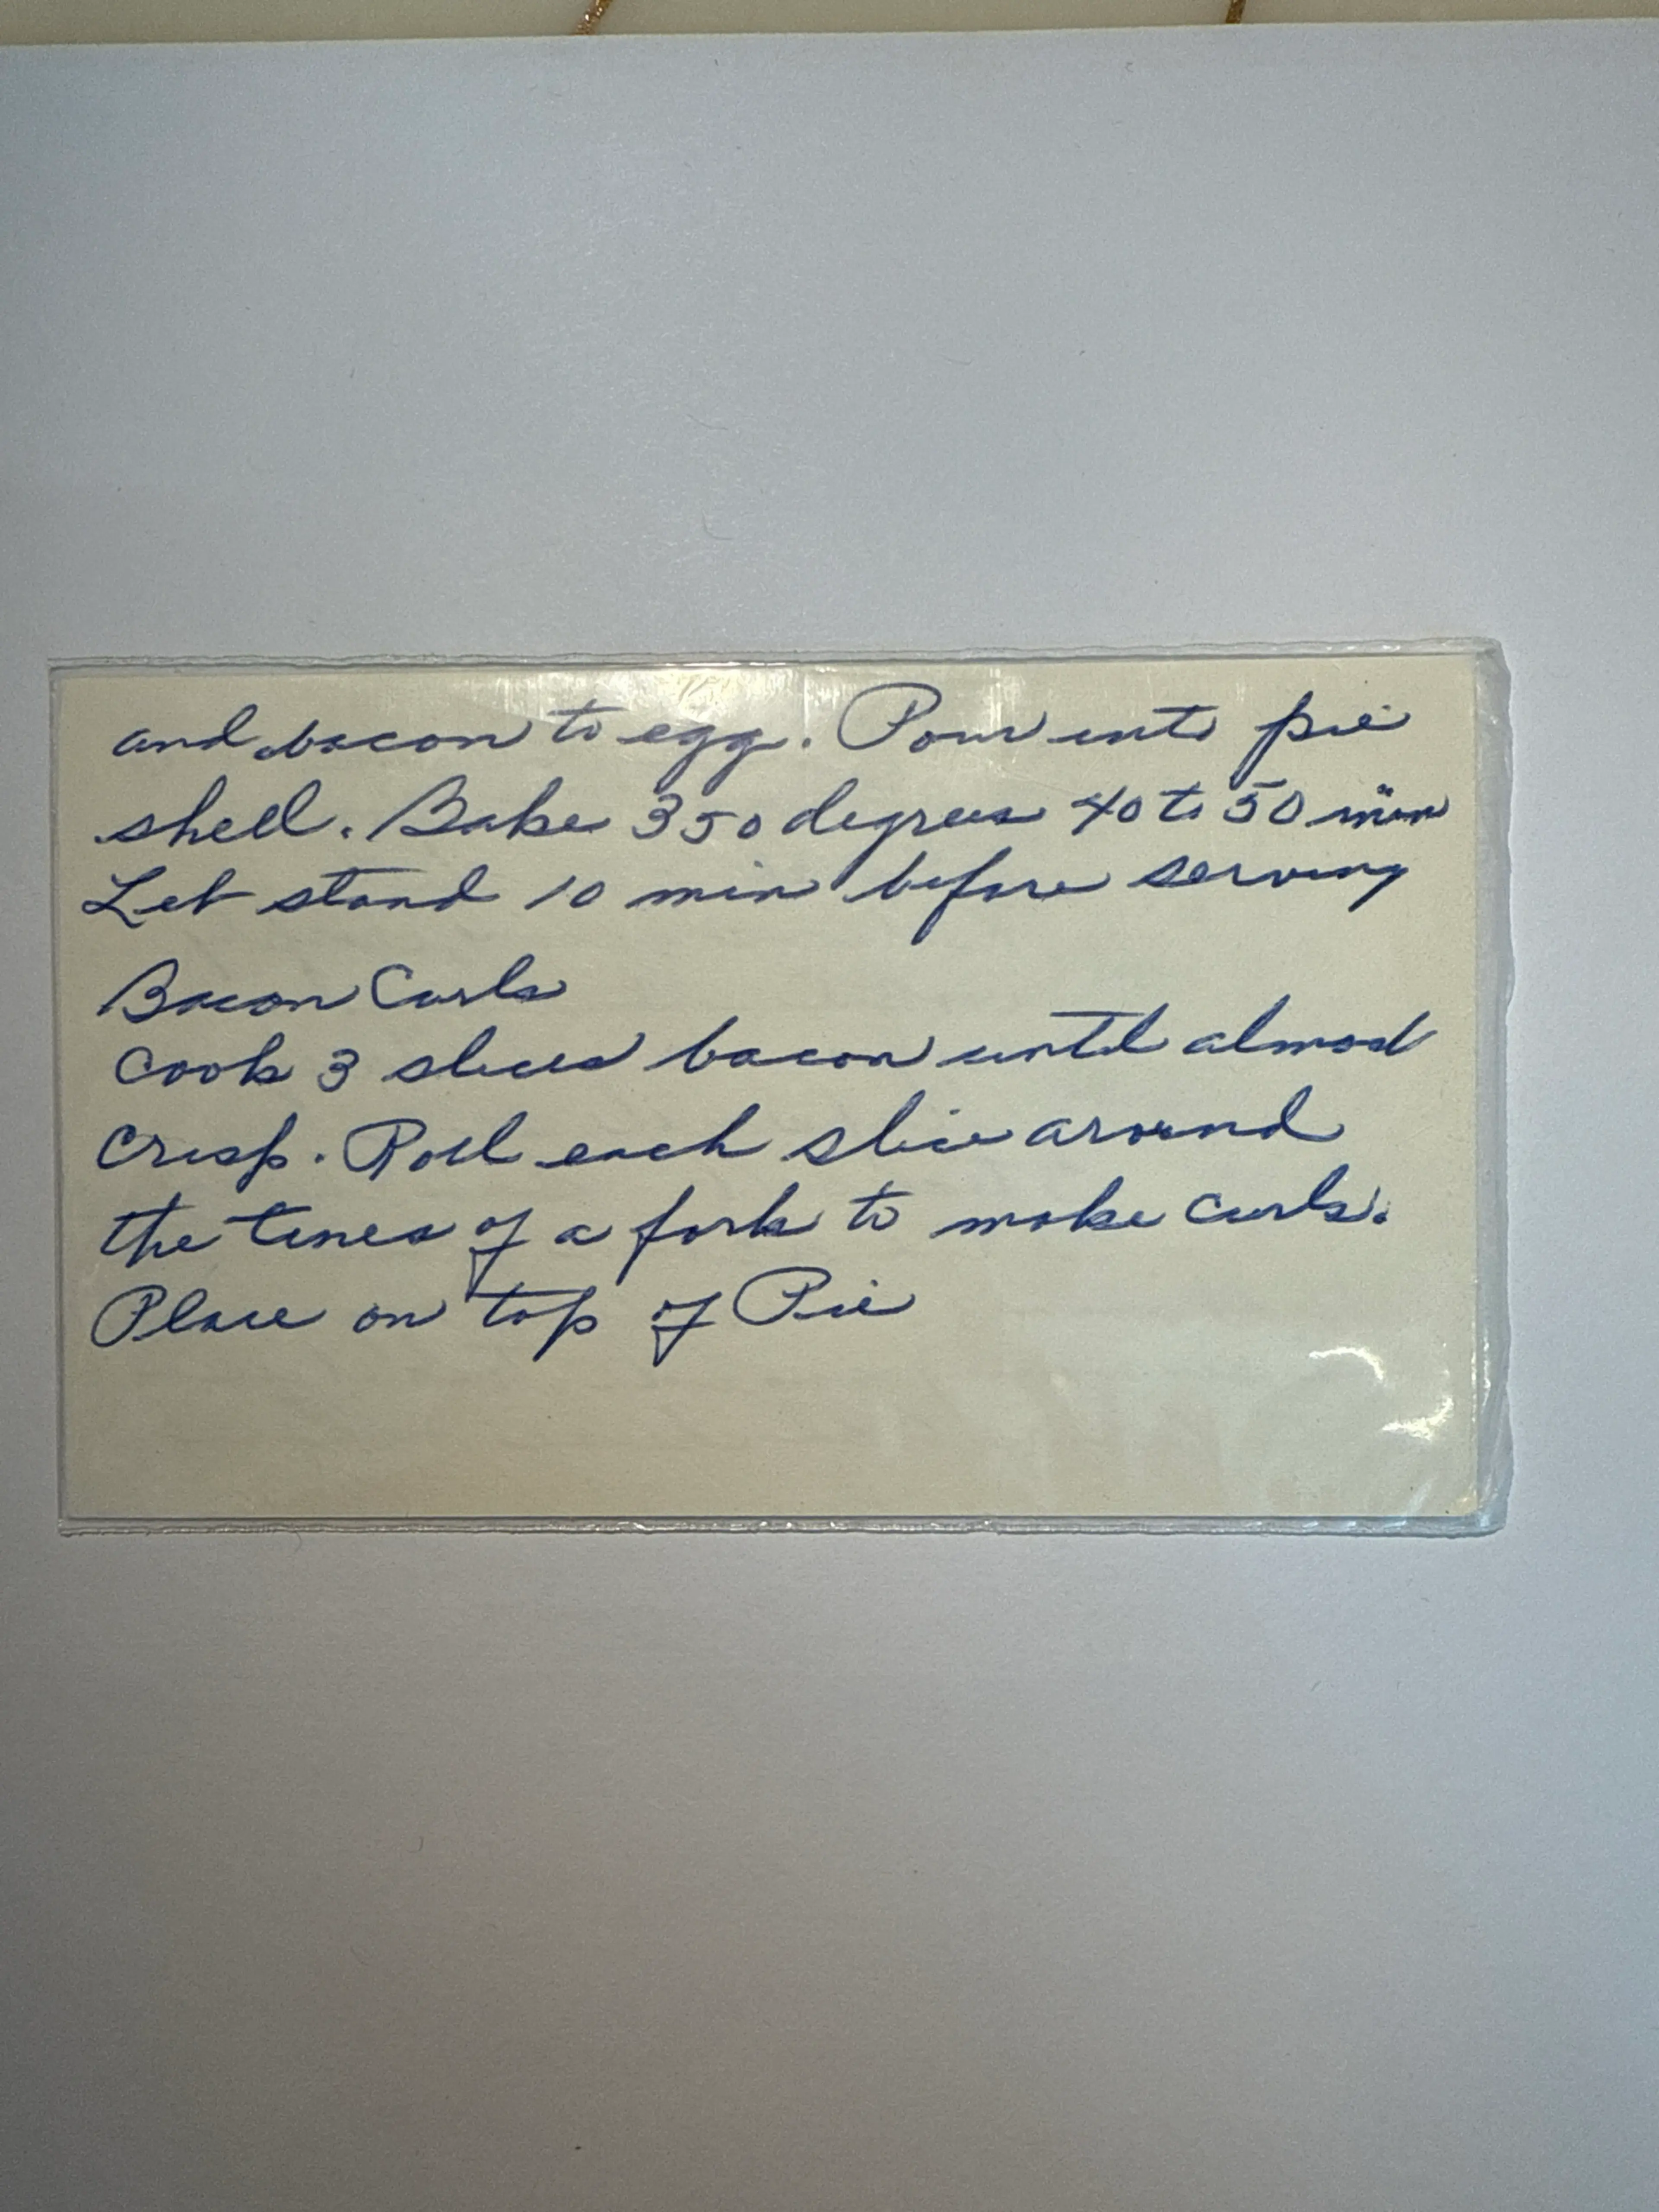 and bacon to egg. Pour into pie
shell. Bake 350 degrees 40 to 50 min
Let stand 10 min before serving
Bacon Curls
Cook 3 slices bacon until almost
Crisp. Roll each slice around
the tines of a fork to make curls.
Place on top of Pie